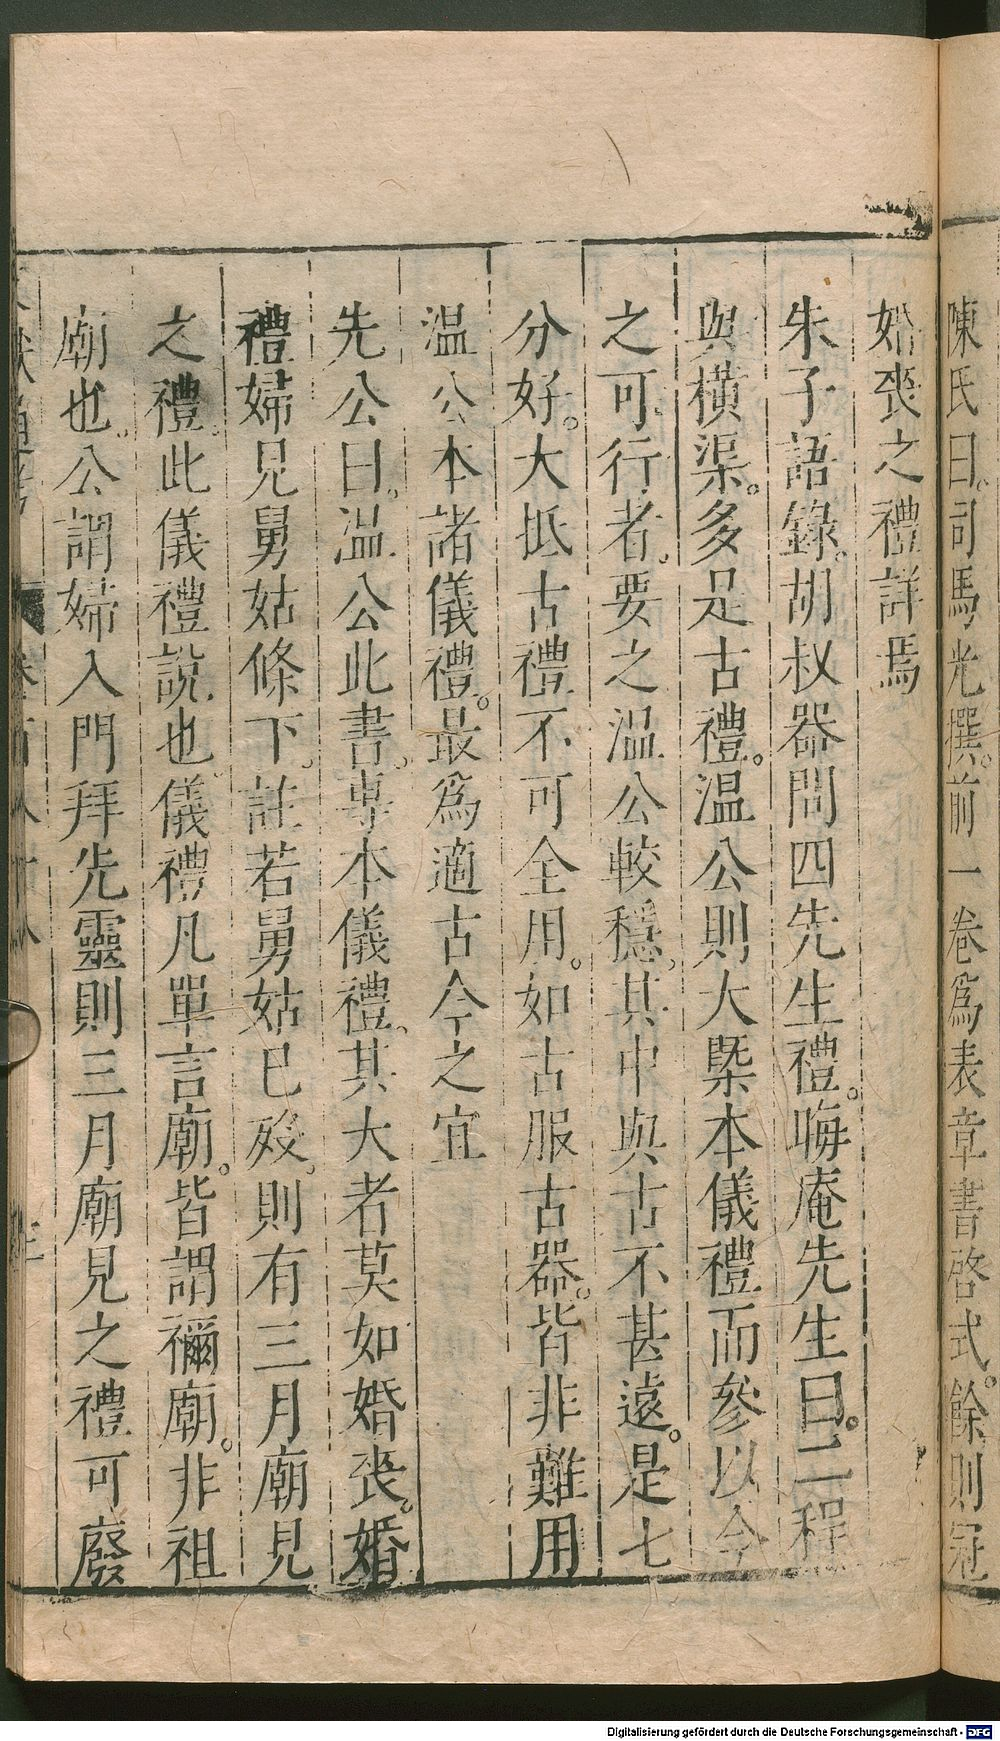 陳氏曰。司馬光撰。前一卷爲表章書啓式。餘則冠
婚喪之禮詳焉
朱子語錄。胡叔器問四先生禮。晦庵先生曰。二程
與橫渠。多足古禮。温公則大槩本儀禮而參以今
之可行者。要之温公較穩。其中與古不甚遠。是七
分好。大抵古禮不可全用。如古服古器。皆非難用
温公本諸儀禮。最爲適古今之宜
先公曰。温公此書。專本儀禮。其大者莫如婚喪。婚
禮婦見舅姑條下。註若舅姑已歿。則有三月廟見
之禮。此儀禮說也。儀禮凡單言廟。皆謂禰廟。非祖
廟也。公謂婦入門拜先靈則三月廟見之禮可廢
Digitalisierung gefördert durch die Deutsche Forschungsgemeinschaft - DFG